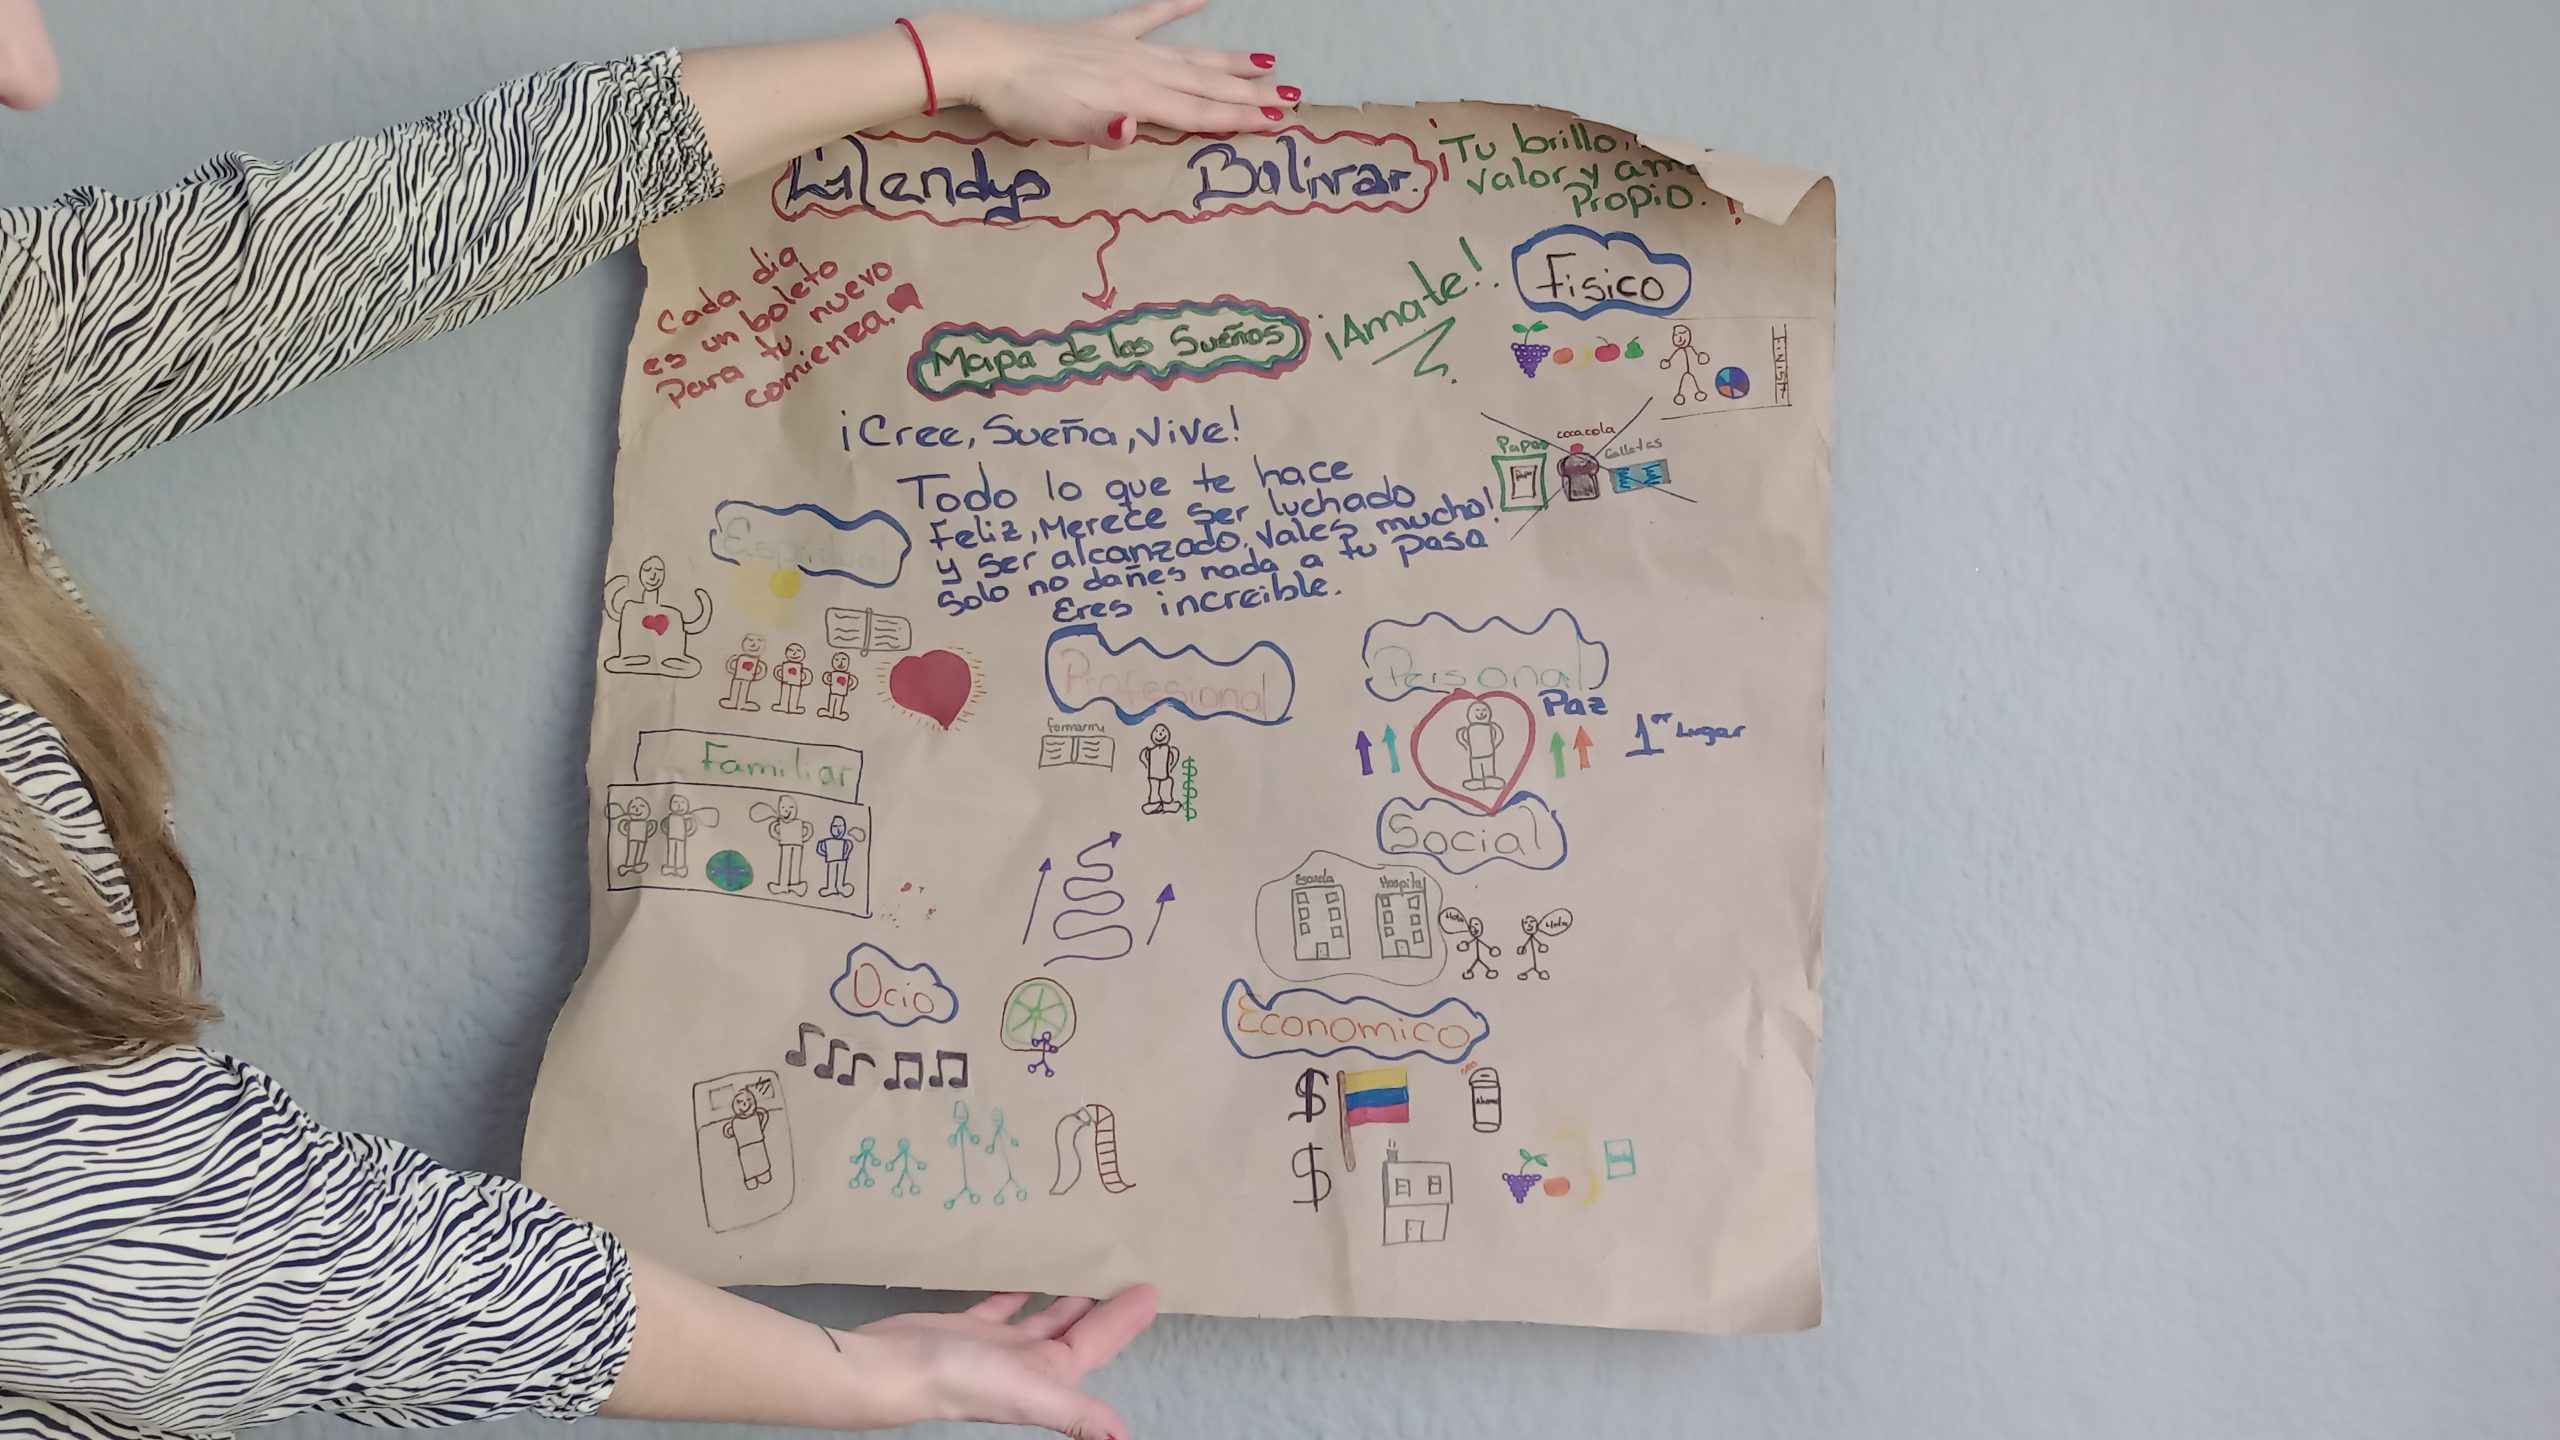 Glendys Bolivar.
¡Tu brillo,
valor y
Propio. !
Cada dia
es un boleto
Para tu nuevo
comienza.
Mapa de los Sueños
¡Amate!
Fisico
FiNiSH
¡Cree, Sueña, Vive!
Todo lo que te hace
Feliz, Merece ser luchado
y ser alcanzado. Vales mucho!
Solo no dañes nada a tu Paso
Eres increible.
Papas
cocacola
Galletas
Espiritual
Profesional
formarme
Personal
Paz
1er Lugar
Familiar
Social
Escuela
Hospital
Hola
Hola
Ocio
Economico
$
$